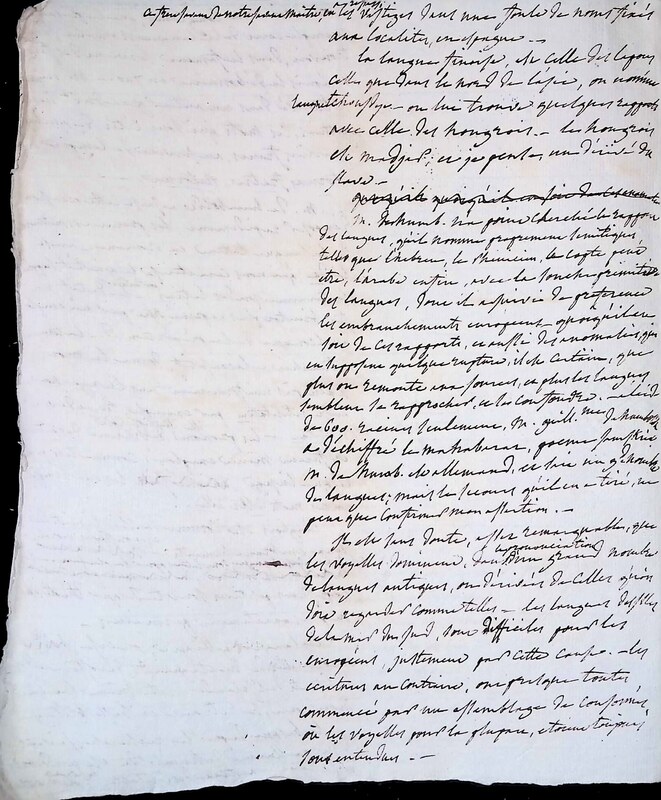 en les vestiges dans une foule de noms fixés
aux localités, en espagne. —
la langue finoise, est celle des lapons
celle que dans le nord de l'asie, on nomme
langue — on lui trouve quelques rapports
avec celle des hongrois. — les hongrois
est madjar; ce je pense, un dérivé du
slave —
M. de humb. n'a point cherché le rapport
des langues, qu'il nomme proprement sémitiques
telles que l'hébreu, le phénicien, le copte peut
être, l'arabe enfin, avec la souche primitive
des langues, dont il a suivi de préférence
les embranchements européens — quoiqu'il en
soit de ces rapports, et aussi des anomalies, qui
en supposent quelque rupture, il est certain, que
plus on remonte aux sources, et plus les langues
semblent se rapprocher, et se confondre. — a l'aide
de 600. racines seulement, M. guill. de humboldt
a déchiffré le mahabarat, poeme sanskrit
M. de humb. est allemand, et sait un gd nombre
des langues; mais le secours qu'il en a tiré, ne
peut que confirmer mon assertion. —
Il est sans doute, assez remarquable, que
les voyelles dominent, dans la prononciation d'un grand nombre
de langues antiques, ou dérivées de celles qu'on
doit regarder comme telles — les langues des isles
de la mer du sud, sont difficiles pour les
européens, justement par cette cause. — les
écritures au contraire, ont presque toutes
commencé par un assemblage de consonnes
où les voyelles pour la plupart, étoient toujours
sous entendues. —